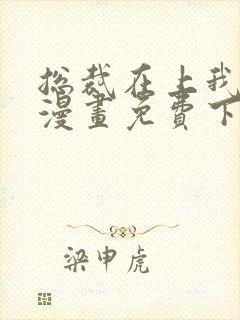 总裁在上我
漫畫免費下
梁申虎